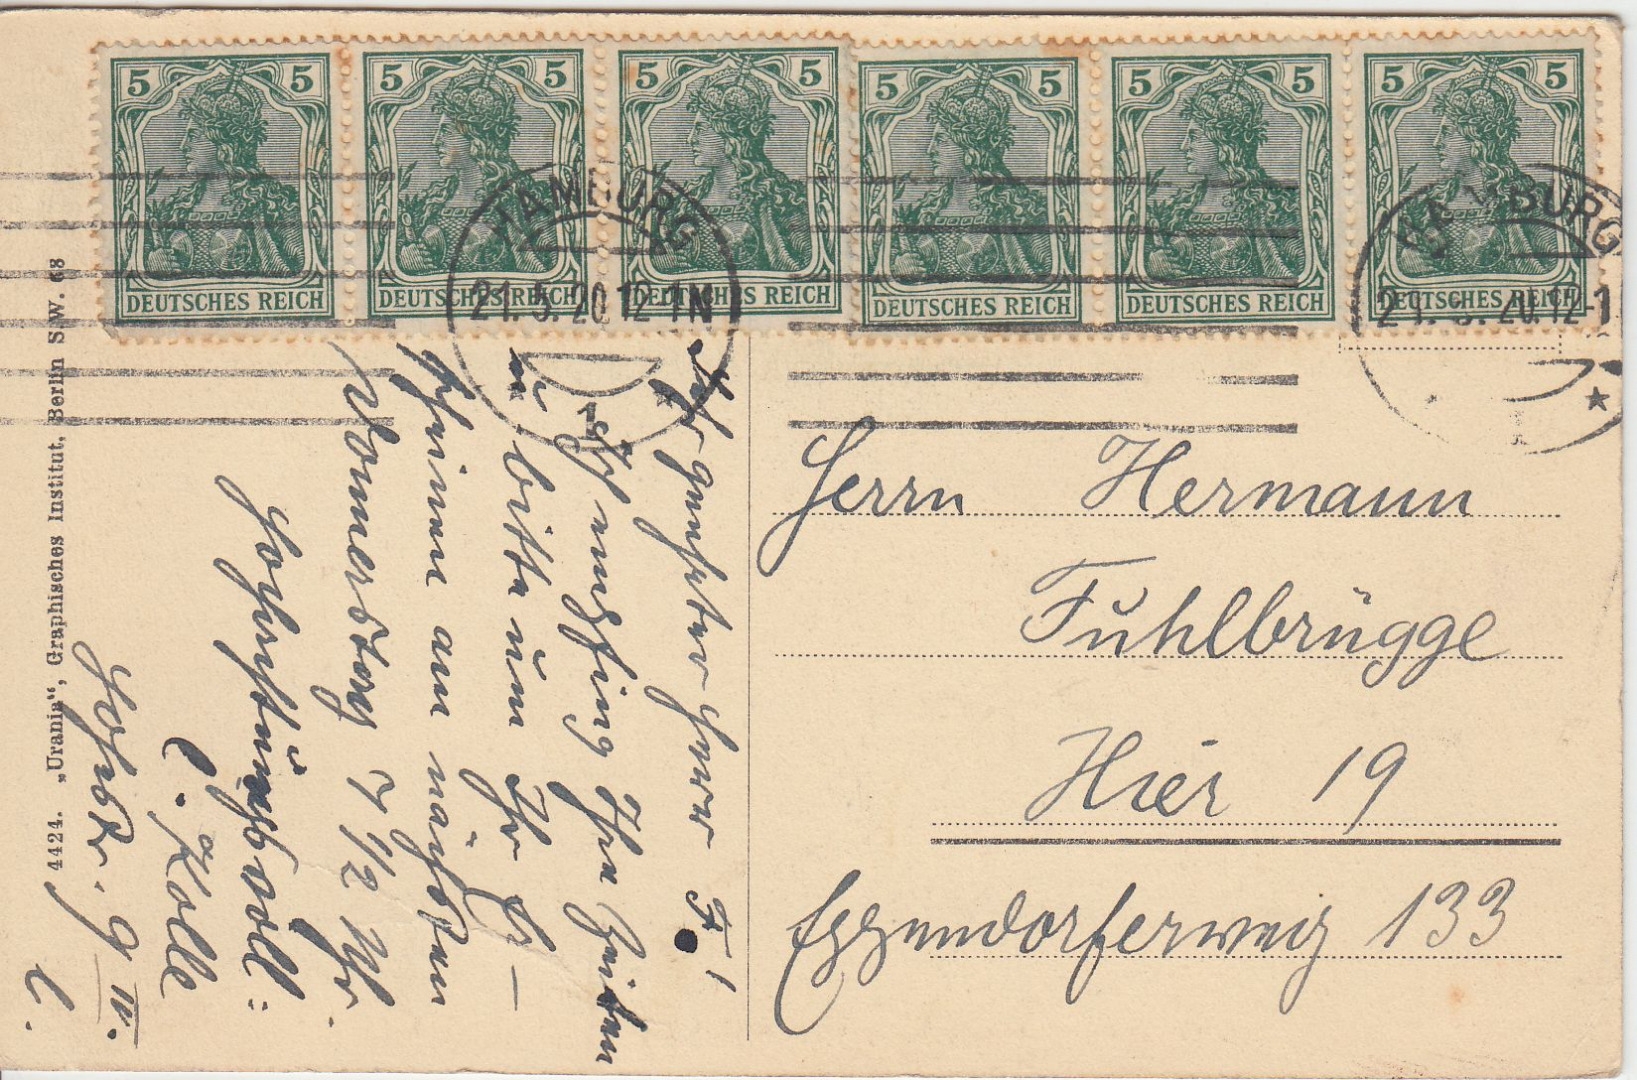 5 5 5 5 5 5 5 5 5 5 5 5
DEUTSCHES REICH DEUTSCHES REICH DEUTSCHES REICH DEUTSCHES REICH DEUTSCHES REICH DEUTSCHES REICH
HAMBURG
21.5.20.12-1N
1
HAMBURG
21.5.20.12-1
1
Sehr geehrter Herr F.!
Ich empfing Ihre Zeilen
u. bitte um Ihr Er-
scheinen am nächsten
Donnerstag 7 1/2 Uhr.
Hochachtungsvoll:
C. Kolle
9 IV.
l.
Herrn Hermann
Fuhlbrügge
Hier 19
Eppendorferweg 133
4424. „Urania“, Graphisches Institut, Berlin S.W. 68